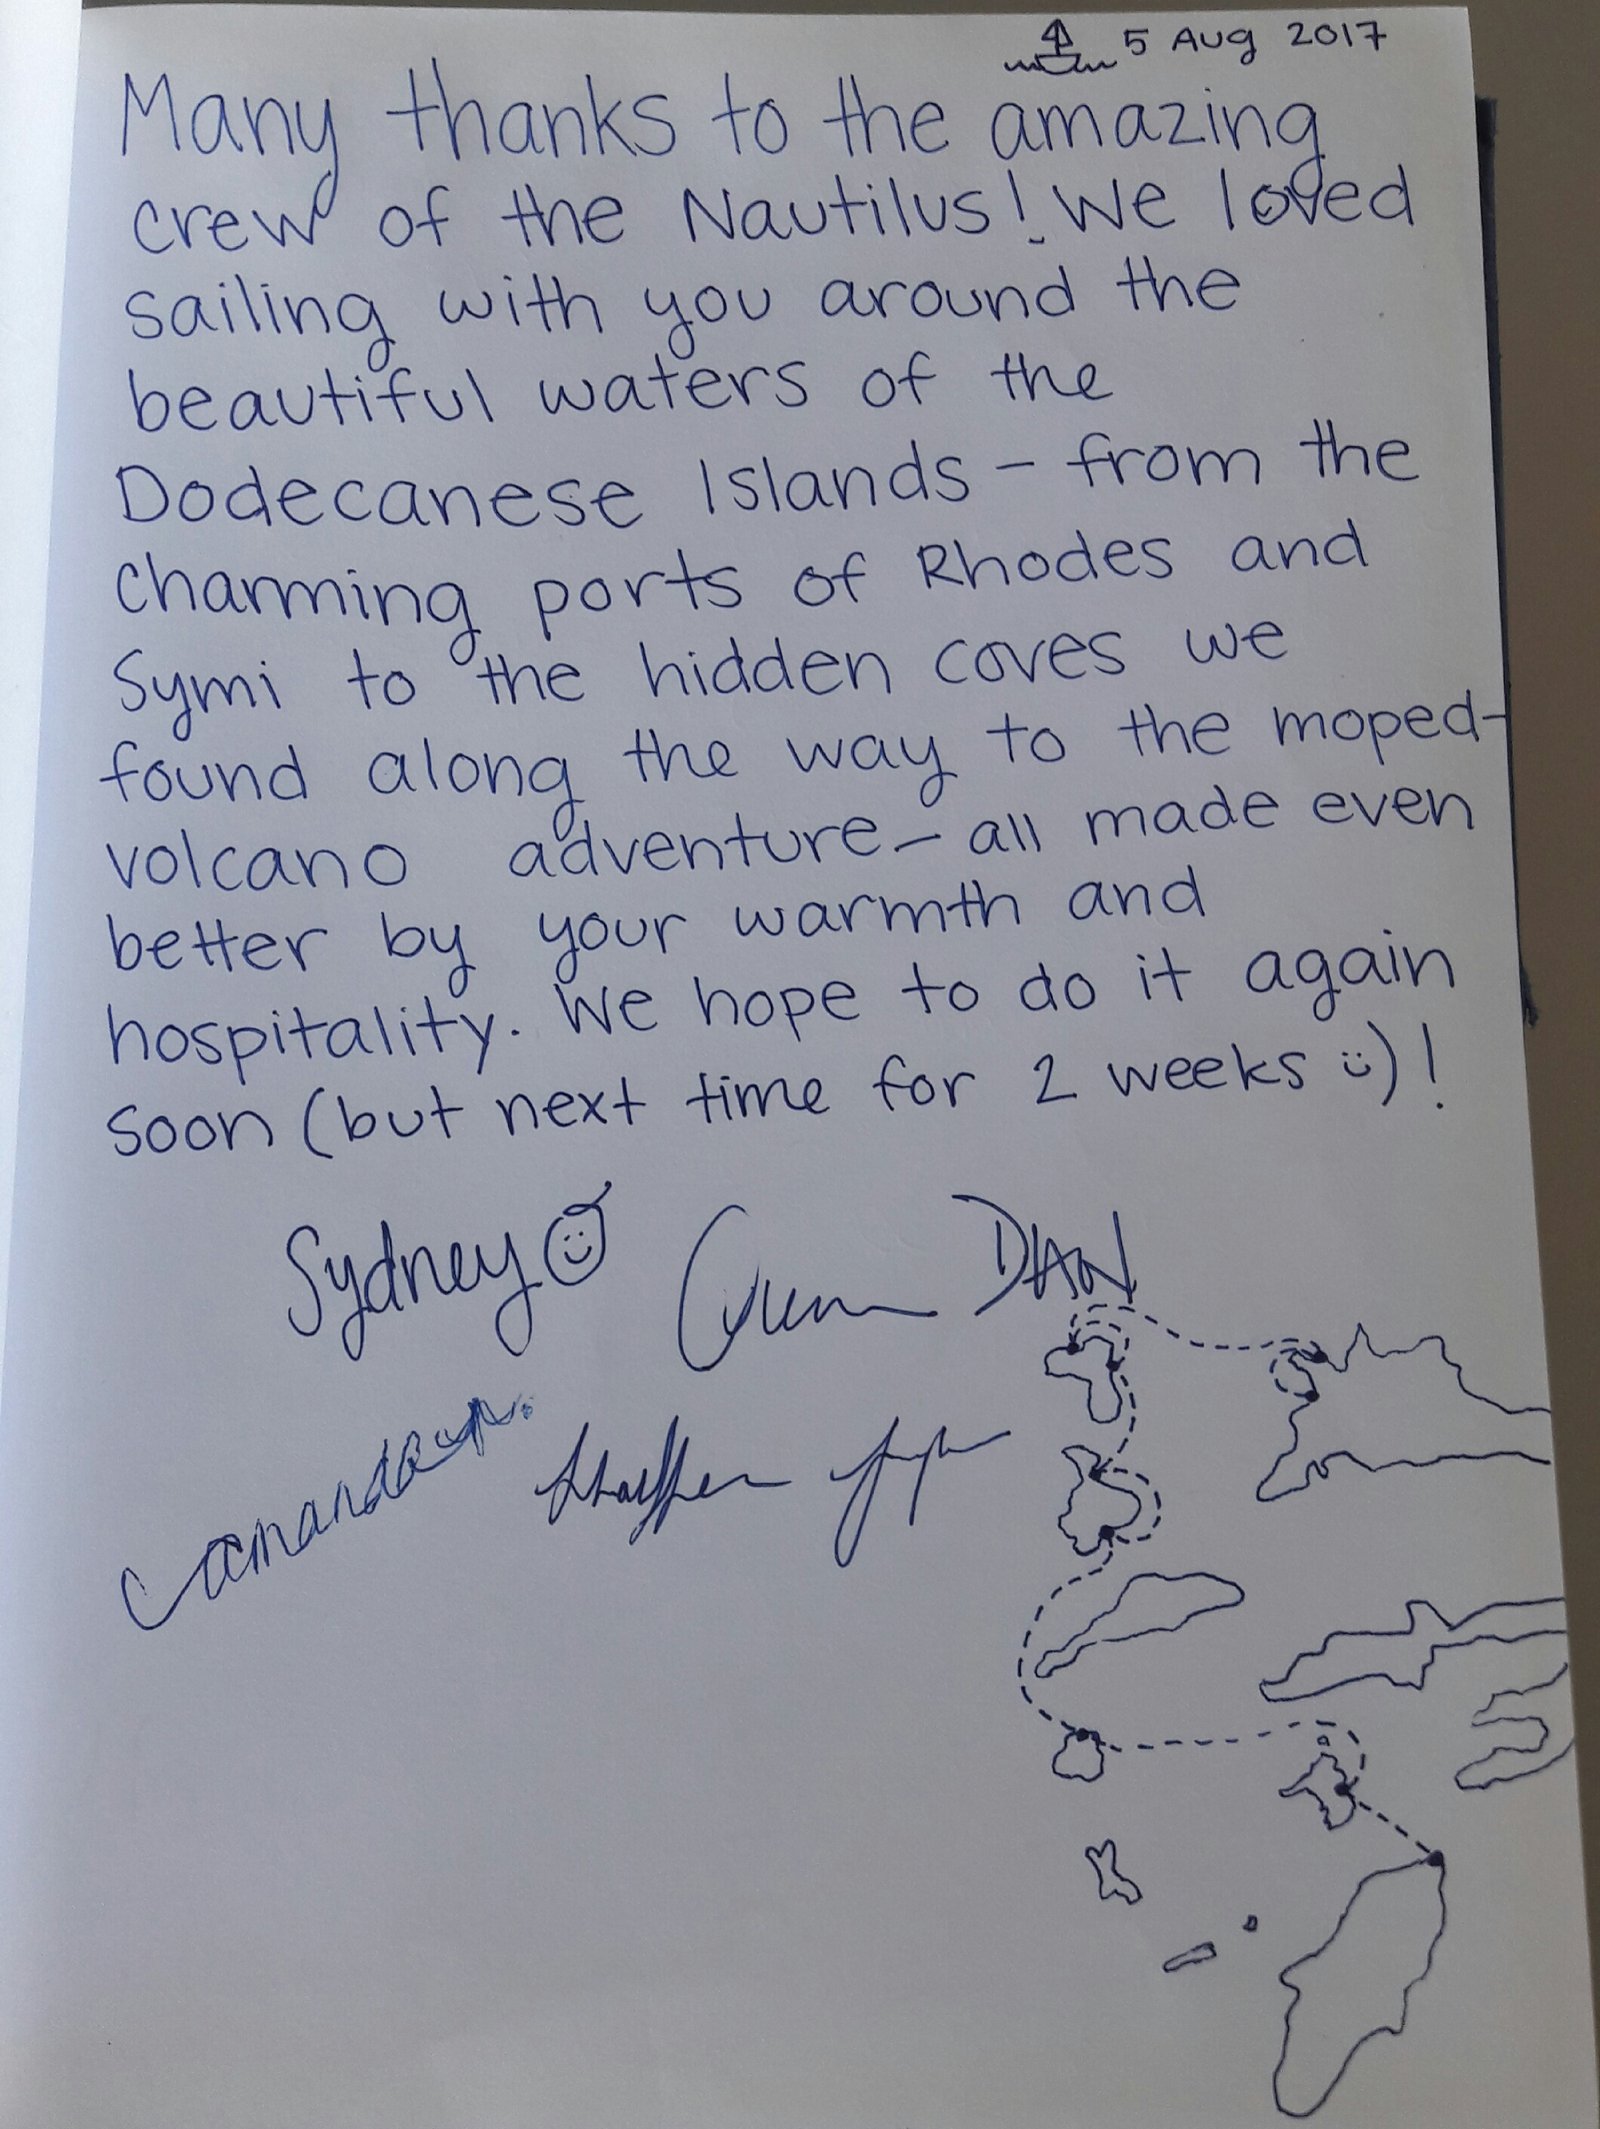 5 Aug 2017
Many thanks to the amazing
crew of the Nautilus! We loved
sailing with you around the
beautiful waters of the
Dodecanese Islands - from the
charming ports of Rhodes and
Symi to the hidden coves we
found along the way to the moped-
volcano adventure - all made even
better by your warmth and
hospitality. We hope to do it again
soon (but next time for 2 weeks :)!
Sydney DIAN